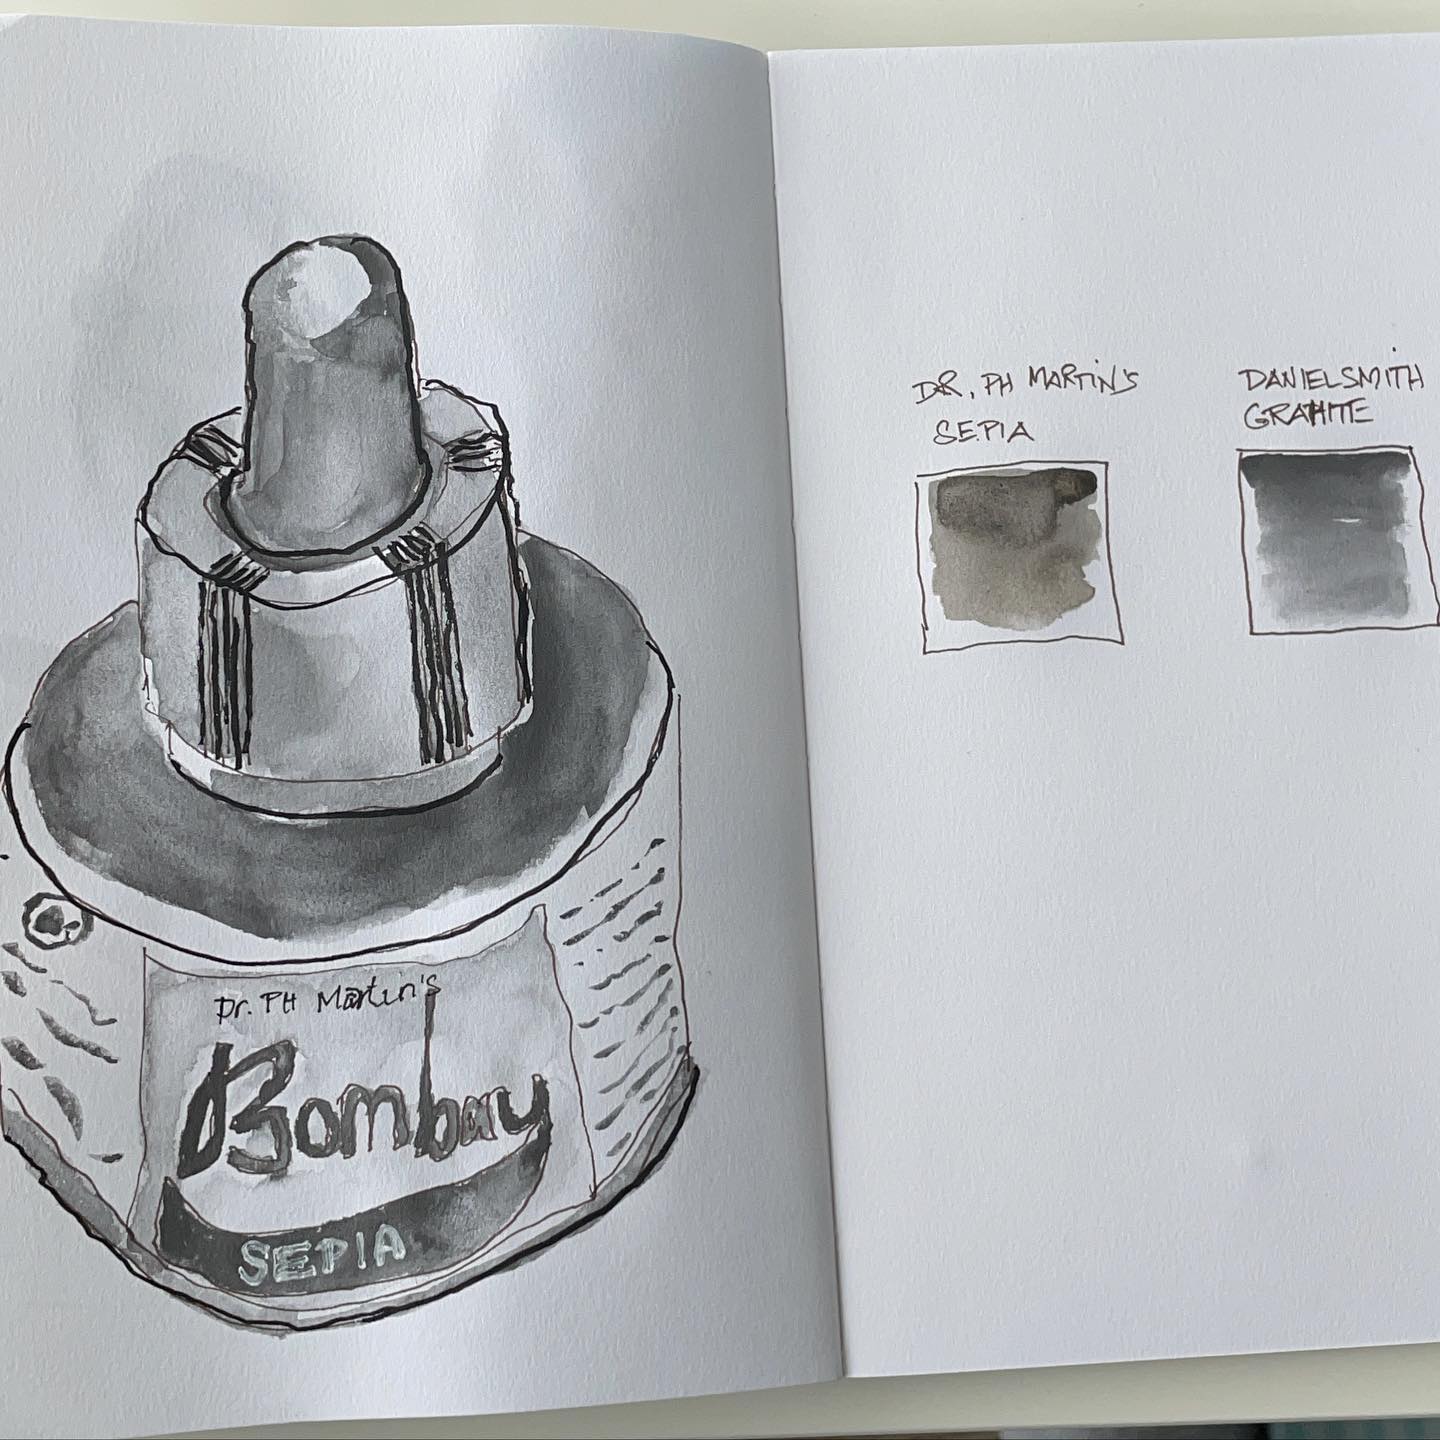 Dr. PH Martin's
Bombay
SEPIA
DR. PH MARTIN'S
SEPIA
DANIEL SMITH
GRAHITE